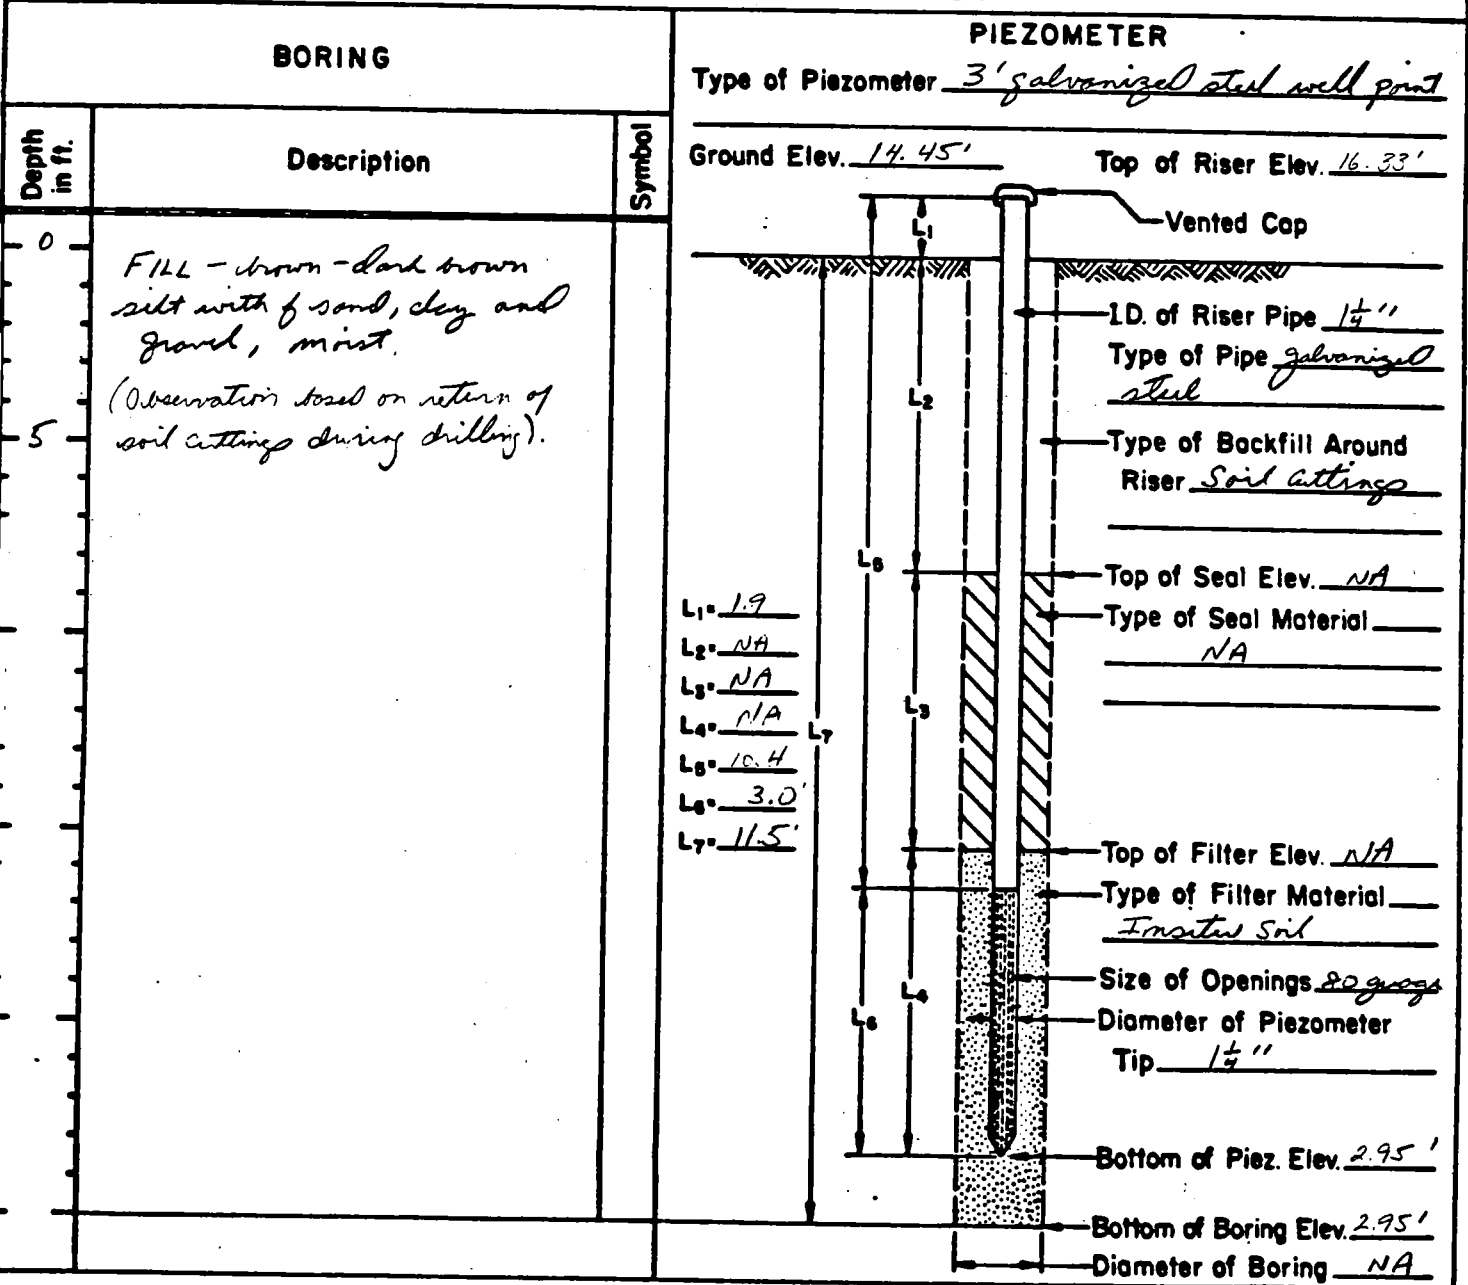 BORING
Depth in ft.
Description
Symbol
0
FILL - brown - dark brown
silt with f sand, clay and
gravel, moist.
(Observation based on return of
soil cuttings during drilling).
5
PIEZOMETER
Type of Piezometer 3' galvanized steel well point
Ground Elev. 14.45' Top of Riser Elev. 16.33'
Vented Cap
L1
I.D. of Riser Pipe 1 1/4"
Type of Pipe galvanized
steel
L2
Type of Backfill Around
Riser Soil cuttings
L5
Top of Seal Elev. NA
Type of Seal Material
NA
L1= 1.9
L2= NA
L3= NA
L4= NA
L5= 10.4
L6= 3.0'
L7= 11.5'
L3
L7
Top of Filter Elev. NA
Type of Filter Material
Insitu Soil
Size of Openings 80 guage
L4
L6
Diameter of Piezometer
Tip 1 1/4"
Bottom of Piez. Elev. 2.95'
Bottom of Boring Elev. 2.95'
Diameter of Boring NA